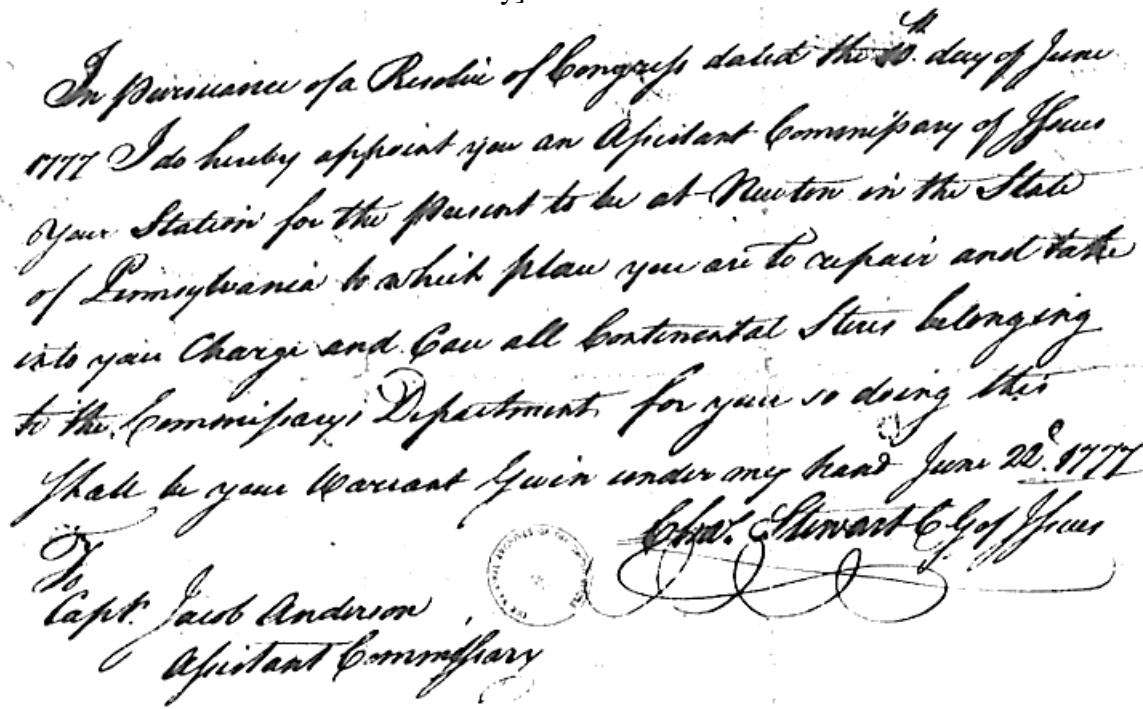 In Pursuance of a Resolve of Congress dated the 10th. day of June
1777 I do hereby appoint you an Assistant Commissary of Issues
Your Station for the Present to be at Newton in the State
of Pennsylvania to which place you are to repair and take
into your Charge and Care all Continental Stores belonging
to the Commissarys Department for your so doing this
Shall be your Warrant Given under my hand June 22d. 1777
Chas. Stewart C G of Issues
To
Capt. Jacob Anderson
Assistant Commissary